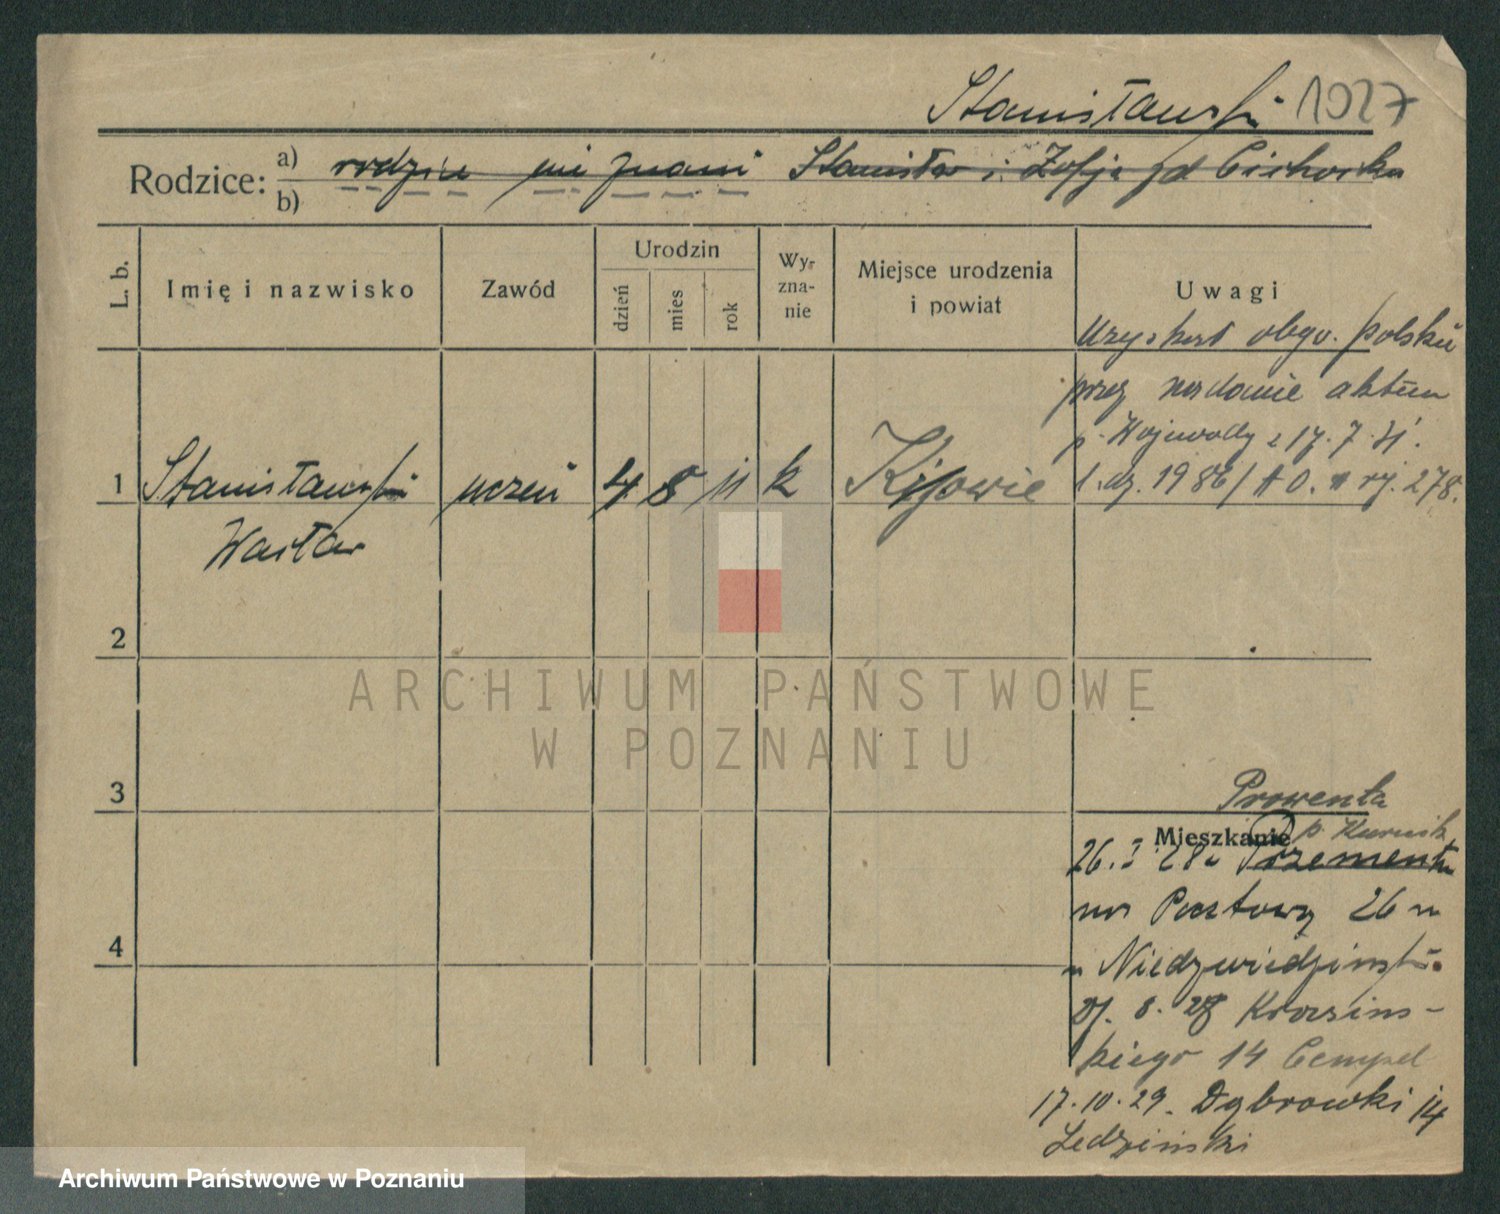 Stanisławski 1927
Rodzice: a) rodzice nie znani Stanisław i Zofja zd Cichocka
b)
L. b.
Imię i nazwisko
Zawód
Urodzin
dzień
mies
rok
Wyznanie
Miejsce urodzenia
i powiat
Uwagi
Uzyskał obyw. polskie
przez nadanie aktem
p. Wojewody z 17.7.31.
l. dz. 1986/ rj. 278.
1 Stanisławski uczeń 4 8 11 k Kijowie
Wacław
2
3
4
Prowenta
Mieszkanie p. Kurnik
26. 3 28 z
na Pocztową 26 m
u Niedzwiedzinski.
21. 8. 28 Krasiń-
skiego 14 Cempel
17.10.29. Dąbrowki 14
Ledziński
ARCHIWUM PAŃSTWOWE
W POZNANIU
Archiwum Państwowe w Poznaniu